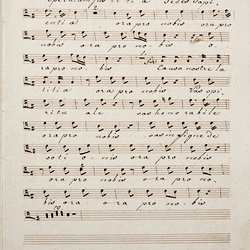 Speculum justitiæ Sedes sapi.
entiæ ora pro nobis ora pro
nobis ora pro nobis o.
ra pro nobis Causa nostræ læ
titiæ ora pro nobis Vas spi.
ritu ale vas honorabile
ora pro nobis vas insigne de
voti o nis ora pro nobis
ora pro nobis ora pro no
bis ora ora pro no bis